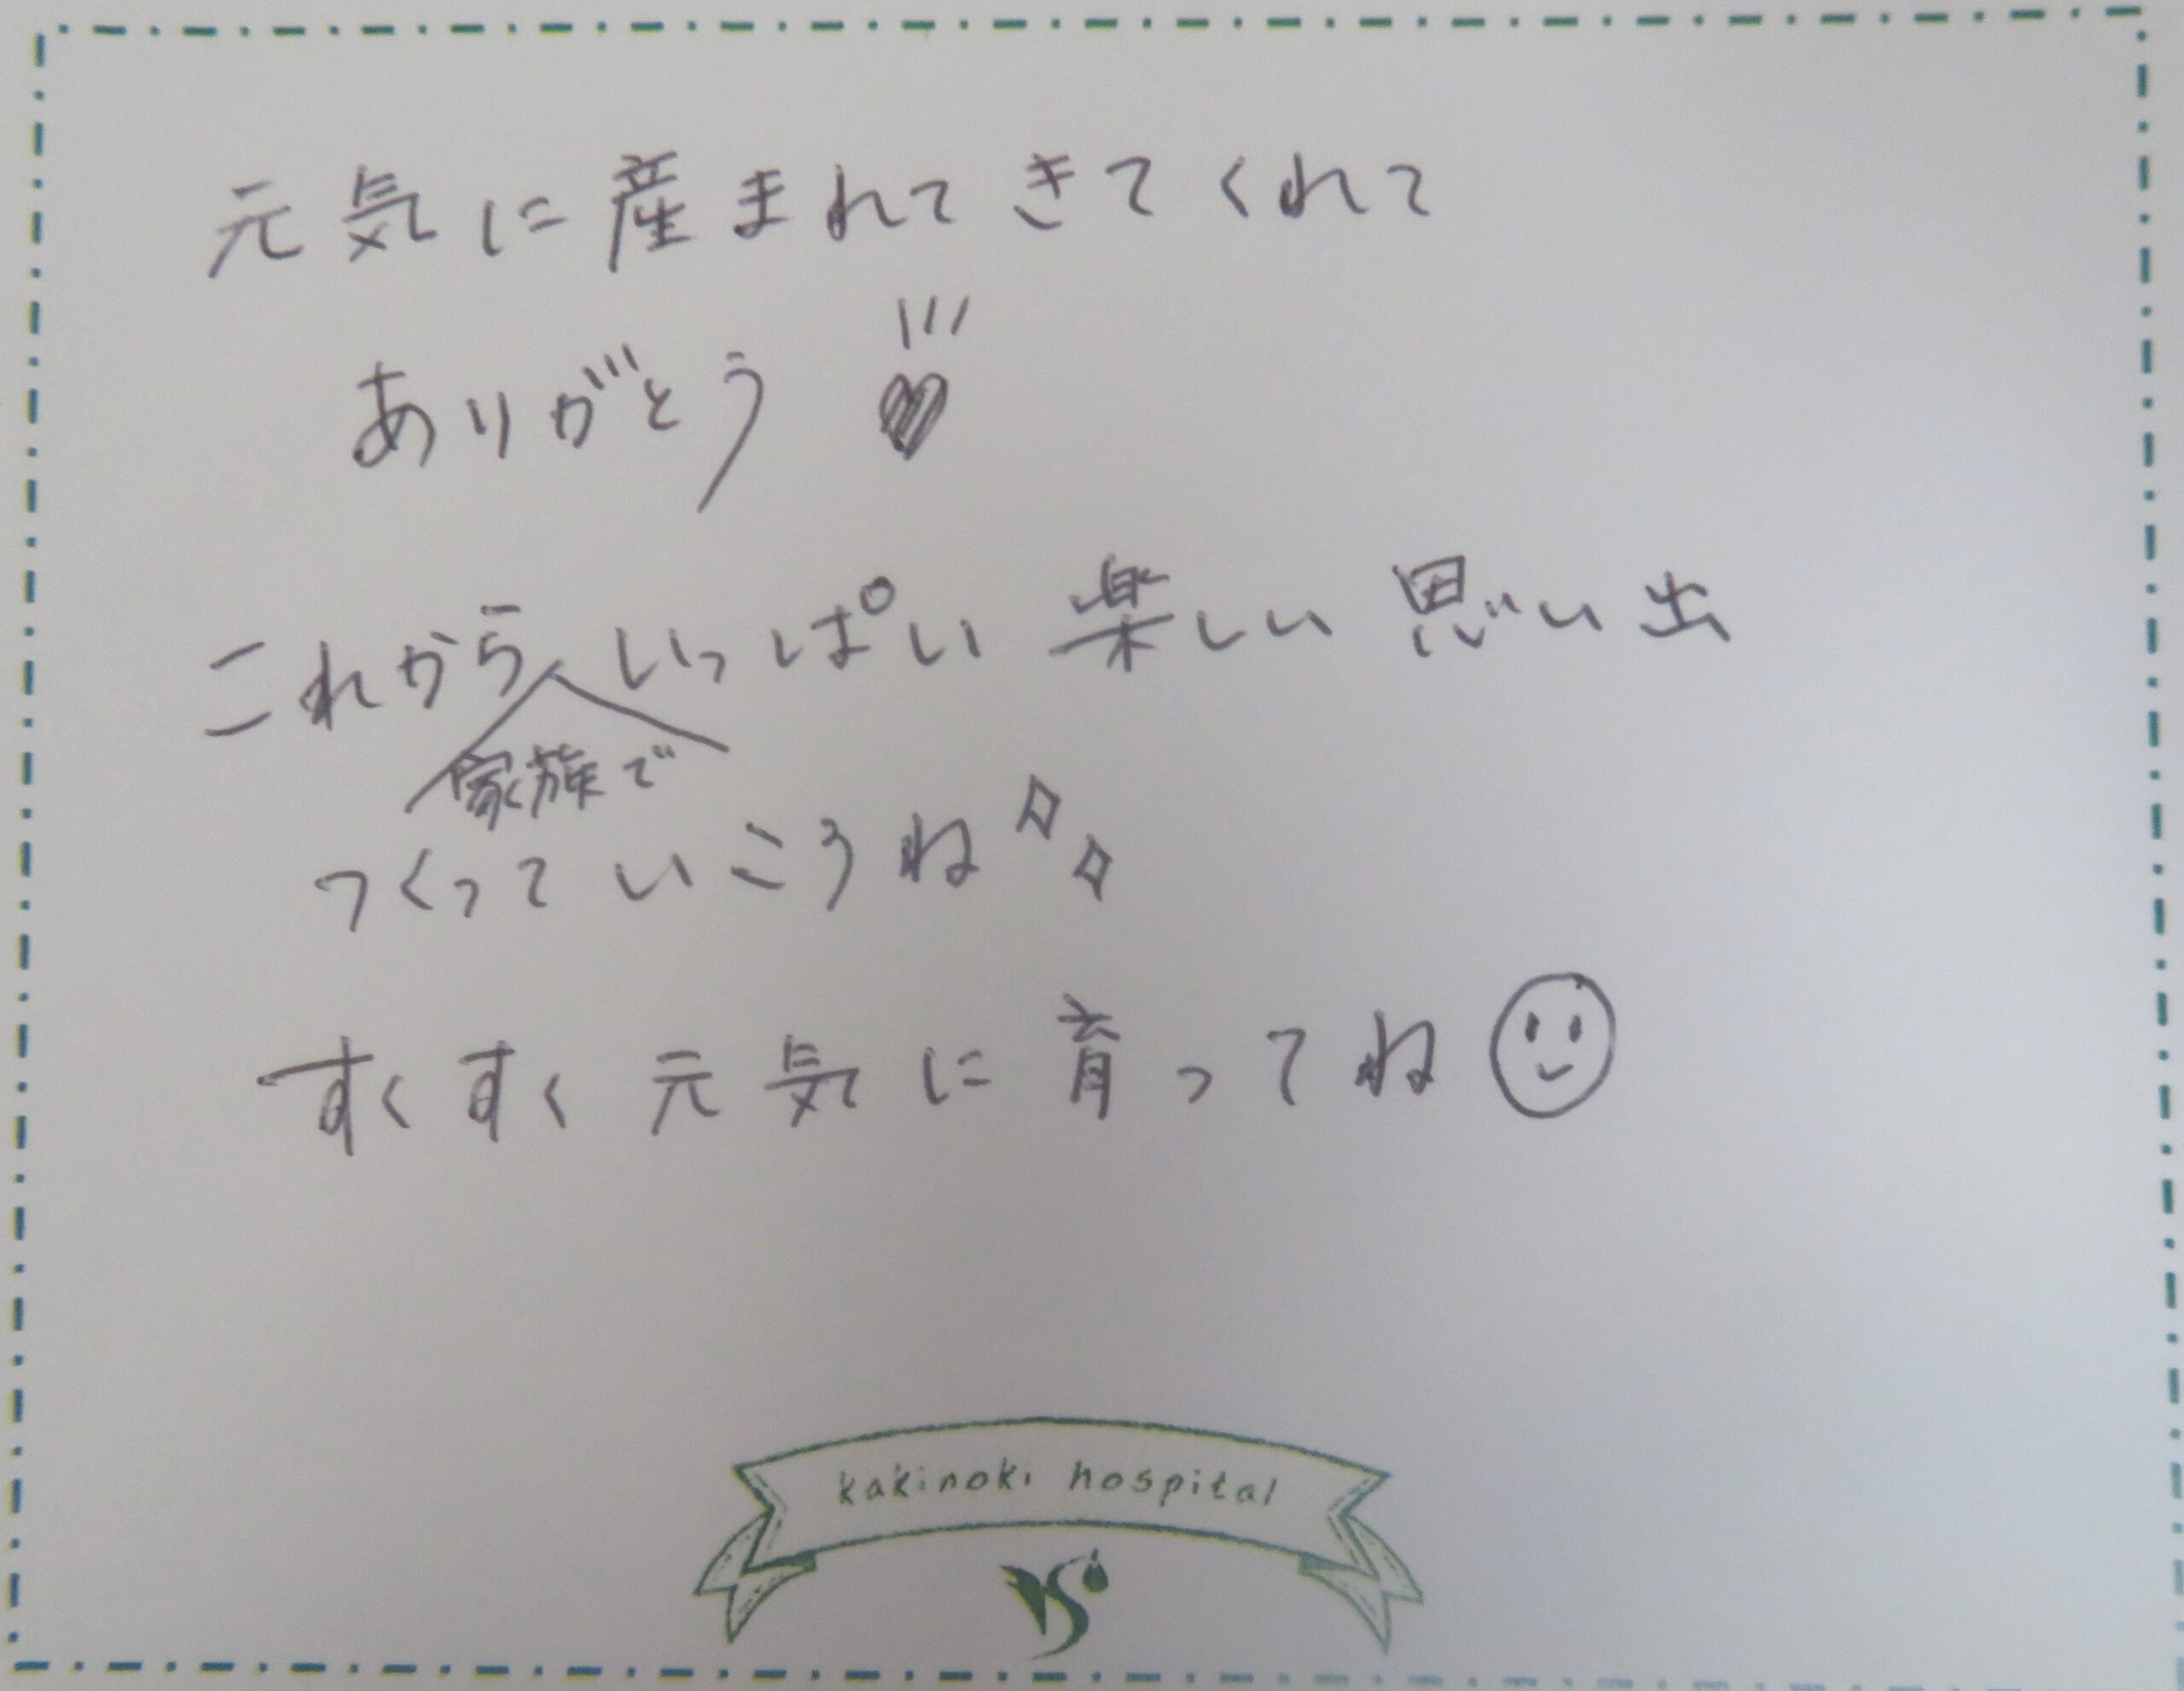 元気に産まれてきてくれて
ありがとう♥
これからいっぱい楽しい思い出
家族で
つくっていこうね
すくすく元気に育ってね☺
kakinoki hospital